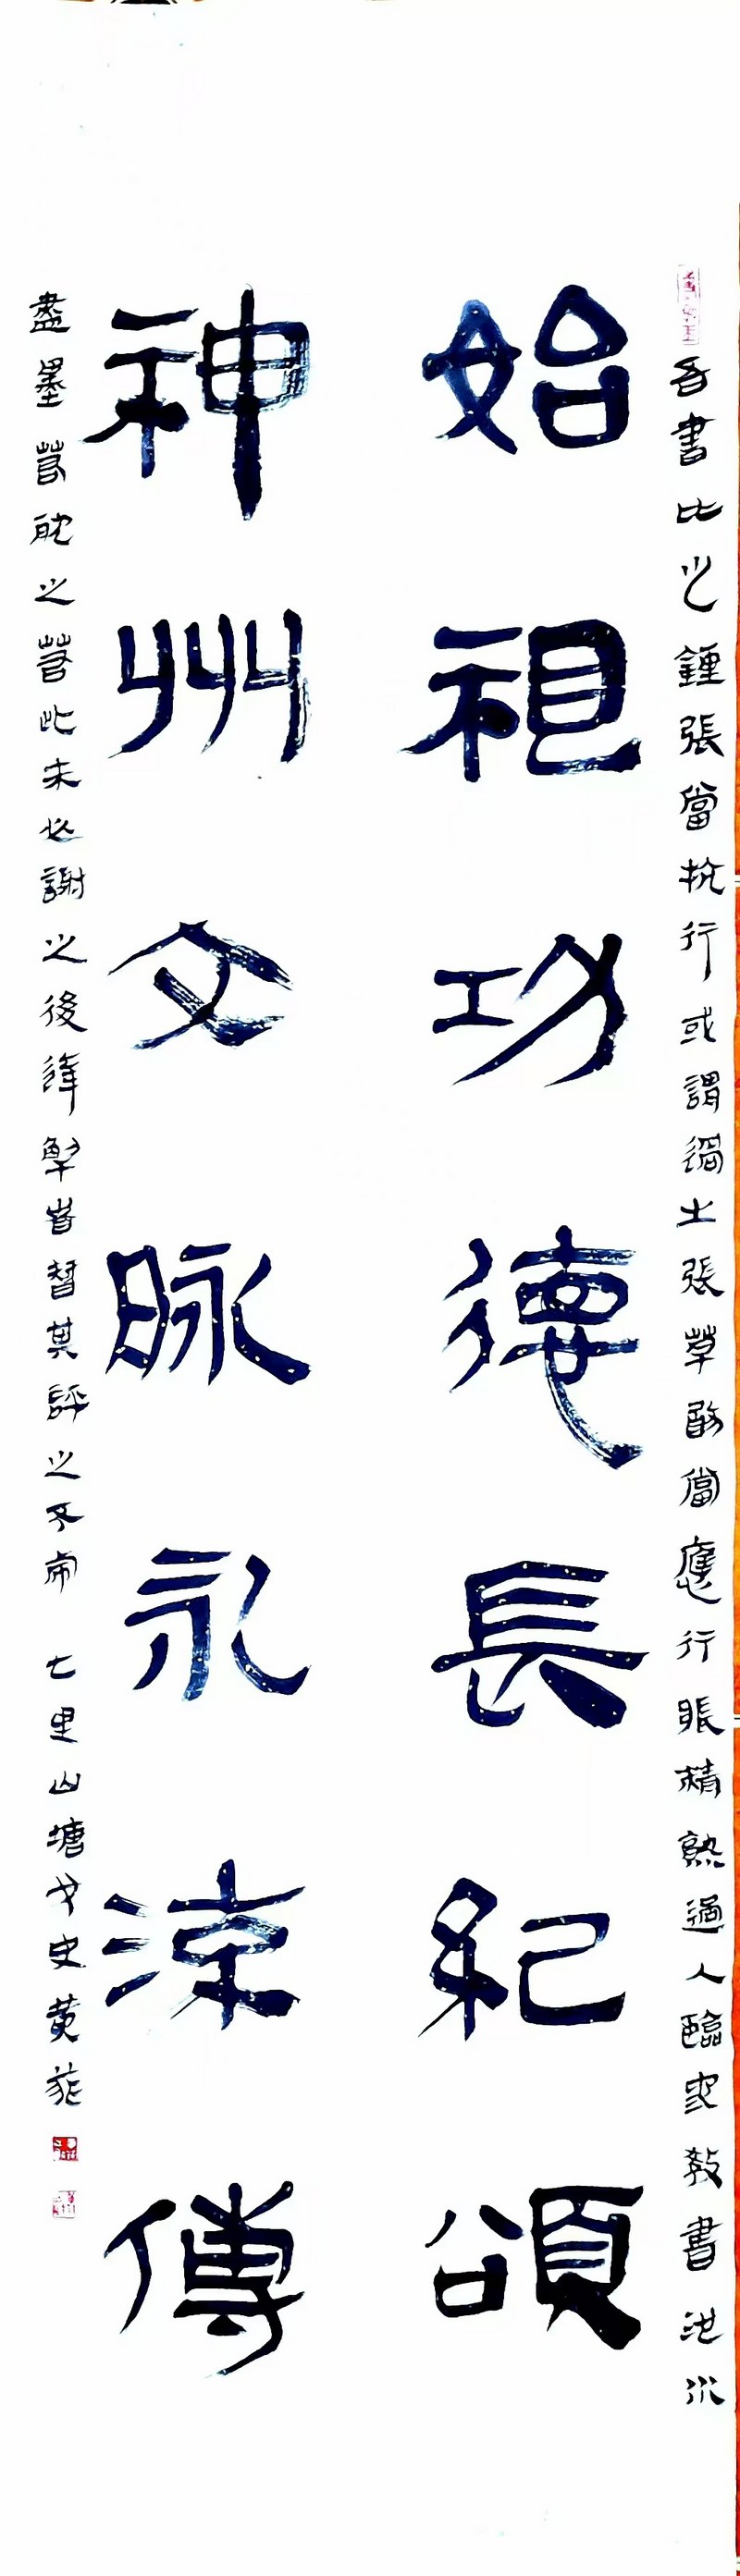 吾書比之鍾張當抗行或謂過之張草敢當應行張精熟過人臨池學書池水
始祖功德長紀頌
神州文脉永流傳
盡墨若耽之若此未必謝之後達解者知其評之不虛 七里山塘女史黄花